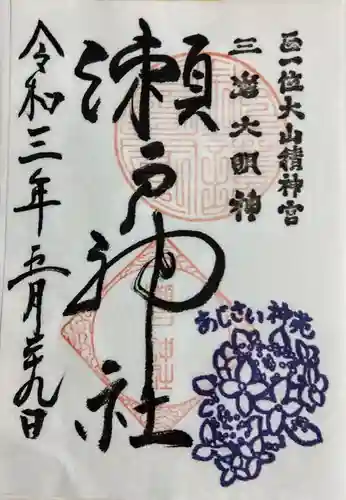 正一位大山積神宮
三嶋大明神
瀬戸神社
令和三年五月廿九日
あじさい神苑